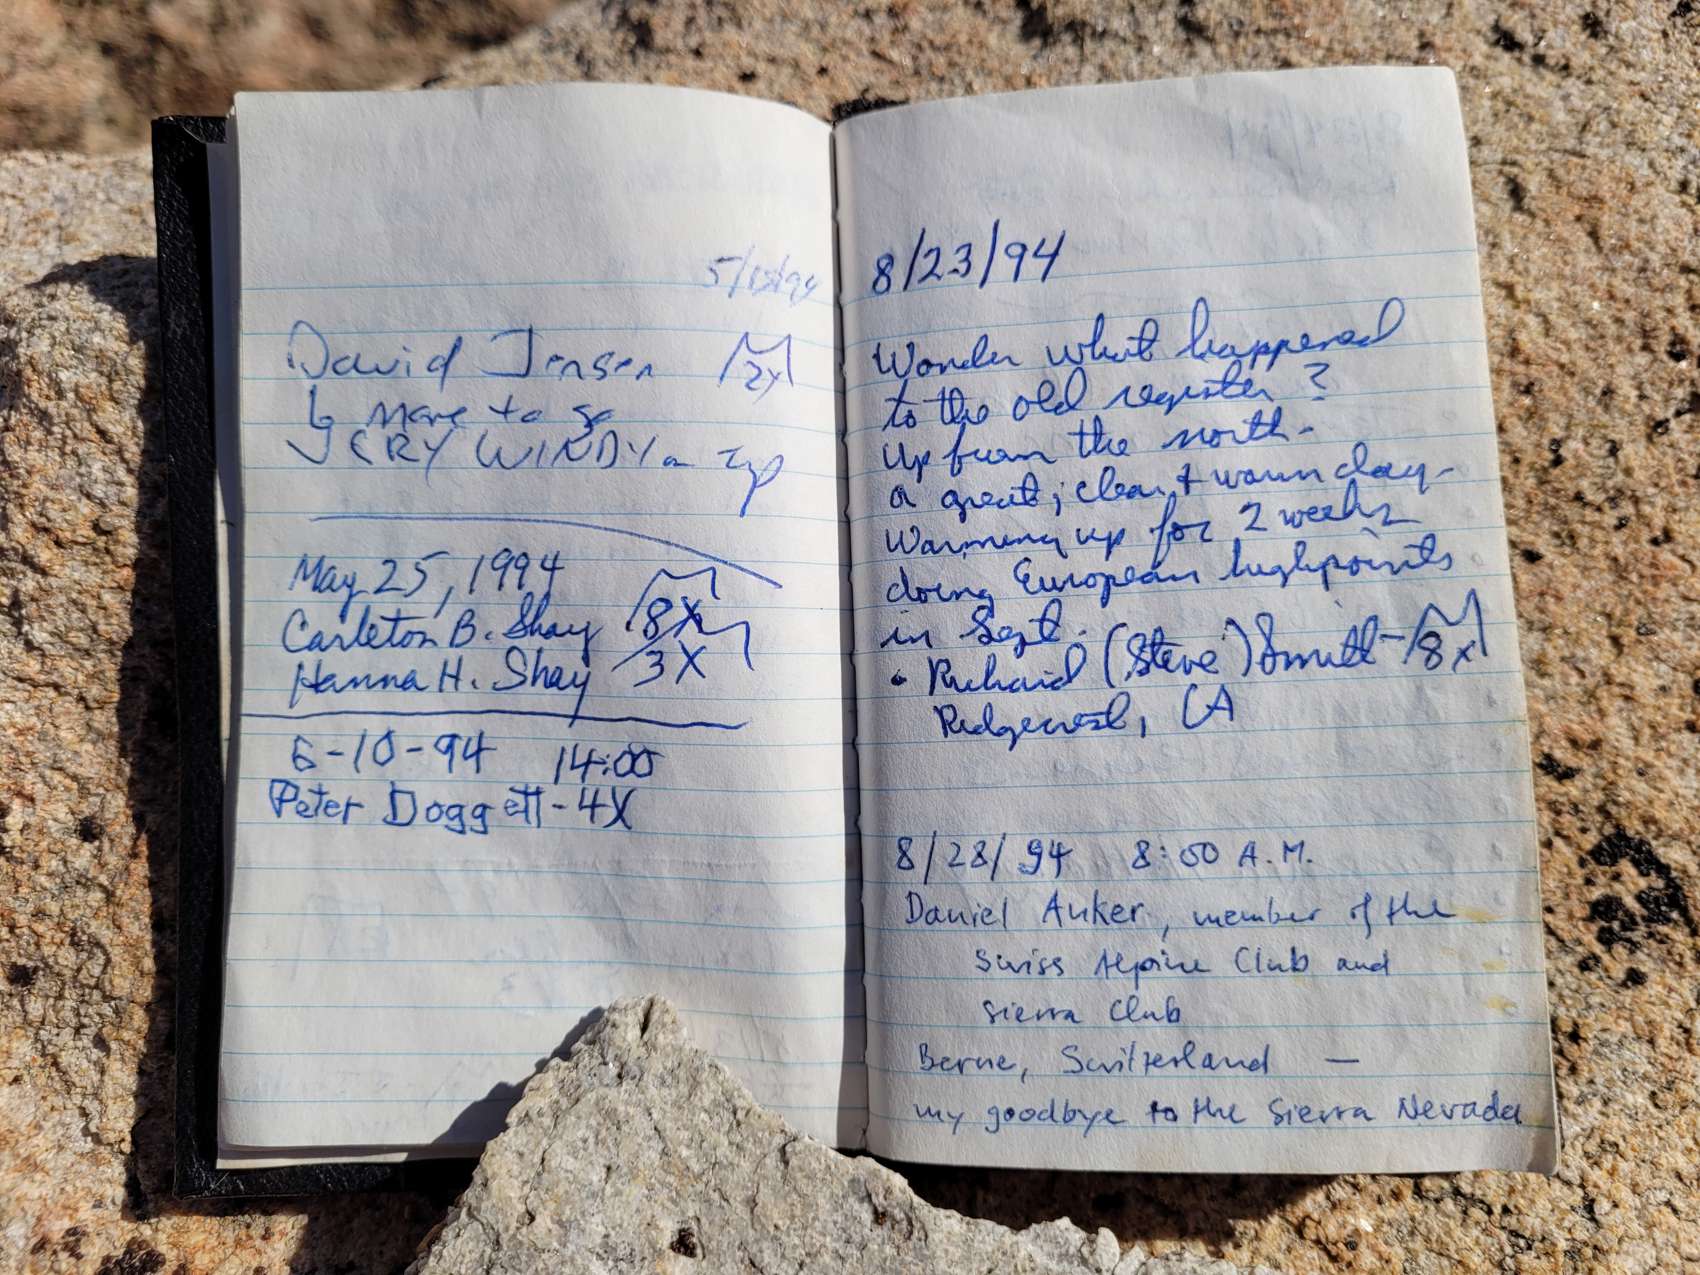 5/15/94
David Jensen 2x
↳ more to go
VERY WINDY on top
May 25, 1994
Carleton B. Shay 8X
Hanna H. Shay 3X
6-10-94 14:00
Peter Doggett - 4X
8/23/94
Wonder what happened
to the old register?
Up from the north -
a great, clear & warm day -
Warming up for 2 weeks
doing European highpoints
in Sept.
• Richard (Steve) Smith - 8x
Ridgecrest, CA
8/28/94 8:50 A.M.
Daniel Anker, member of the
Swiss Alpine Club and
Sierra Club
Berne, Switzerland —
my goodbye to the Sierra Nevada